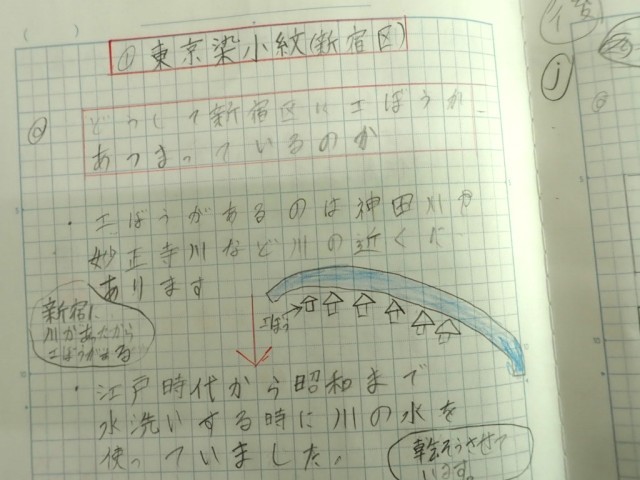 ① 東京染小紋(新宿区)
◎ どうして新宿区に工ぼうが
あつまっているのか
・工ぼうがあるのは神田川や
妙正寺川など川の近くに
あります
新宿に
川があったから
工ぼうがある
工ぼう
・江戸時代から昭和まで
水洗いする時に川の水を
使っていました。
います。
j